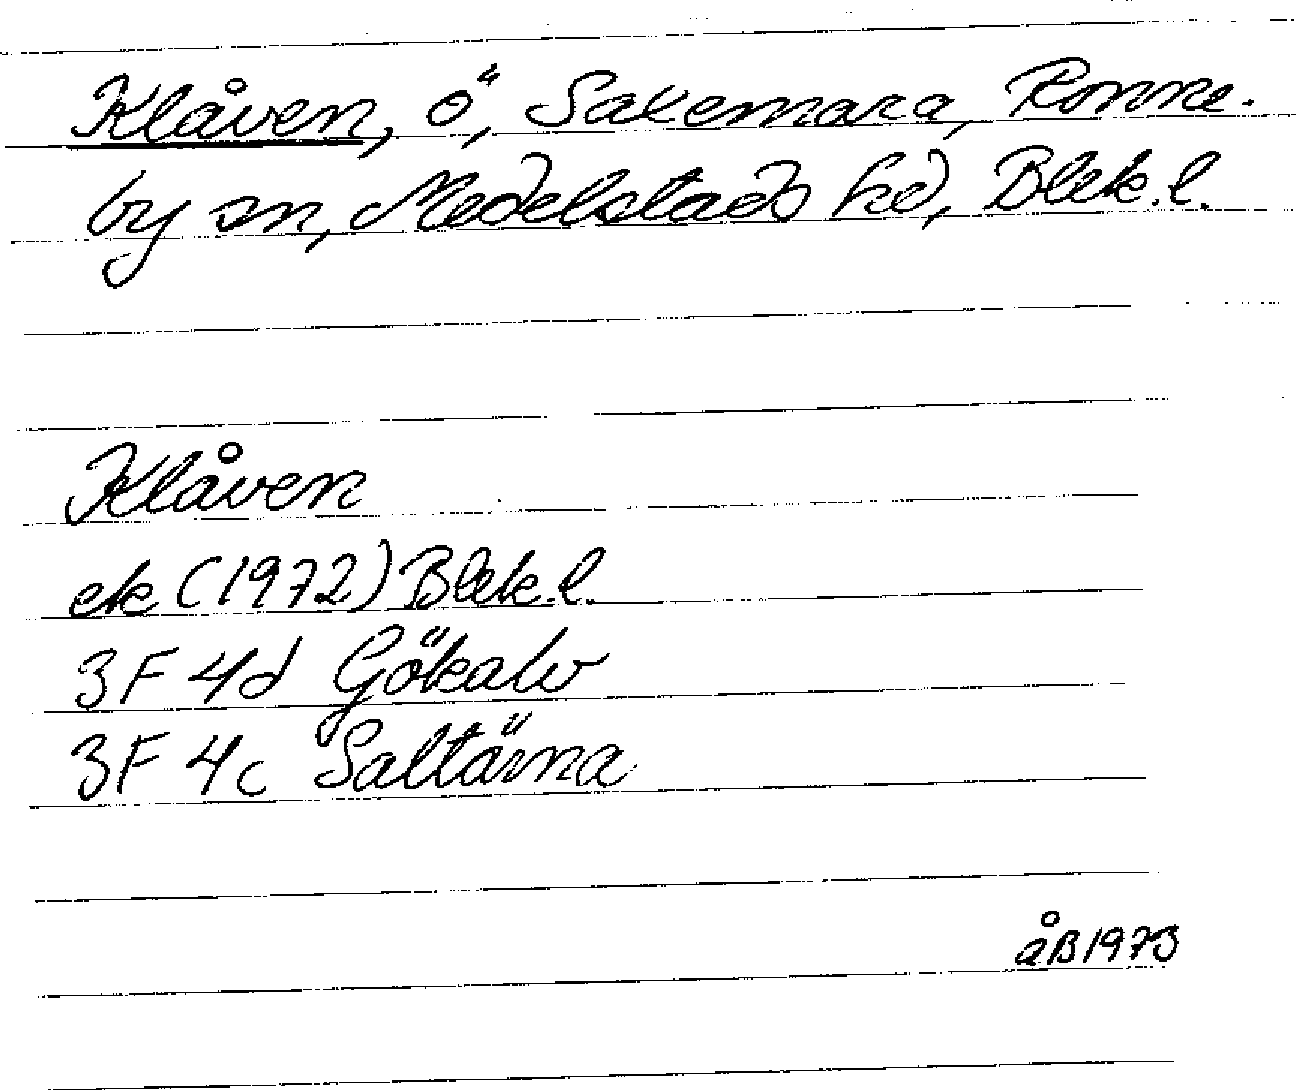 Klåven, ö, Saxemara, Ronne-
by sn, Medelstads hd, Blek.l.
Klåven
ek (1972) Blek.l.
3F 4d Gökalv
3F 4c Saltärna
åB 1973